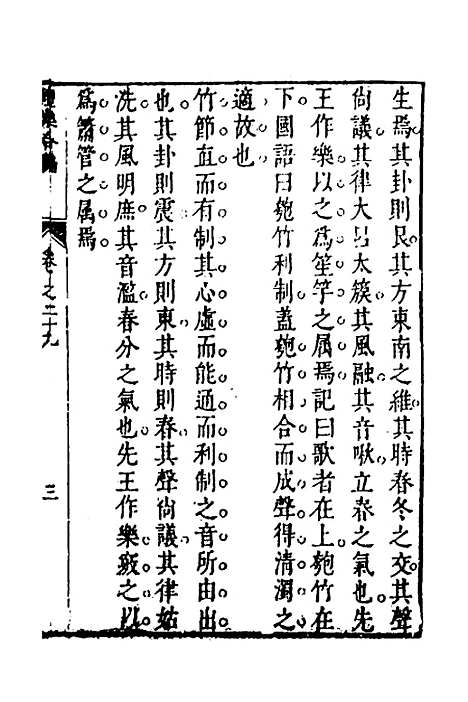 生焉其卦則艮其方東南之維其時春冬之交其聲
尙議其律大呂太簇其風融其音啾立春之氣也先
王作樂以之爲笙竽之属焉記曰歌者在上匏竹在
下國語曰匏竹利制蓋匏竹相合而成聲得清濁之
適故也
竹節直而有制其心虛而能通而利制之音所由出
也其卦則震其方則東其時則春其聲尙議其律姑
洗其風明庶其音濫春分之氣也先王作樂竅之以
爲簫管之属焉
卷之二十九
三